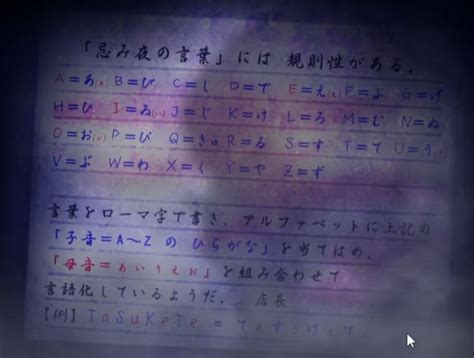 「忌み夜の言葉」には 規則性がある。
A=あ B=び C=し D=で E=え F=ぶ G=げ
H=ひ I=ゐ J=じ K=け L=ろ M=む N=ぬ
O=お P=ぴ Q=きゅ R=る S=す T=て U=う
V=ぶ W=わ X=く Y=や Z=ず
言葉をローマ字で書き、アルファベットに上記の
「子音=A〜Z の ひらがな」を当てはめ、
「母音=ぁぃぅぇぉ」を組み合わせて
言語化しているようだ。 店長
【例】TaSuKeTe=てぁすぅけぇてぇ